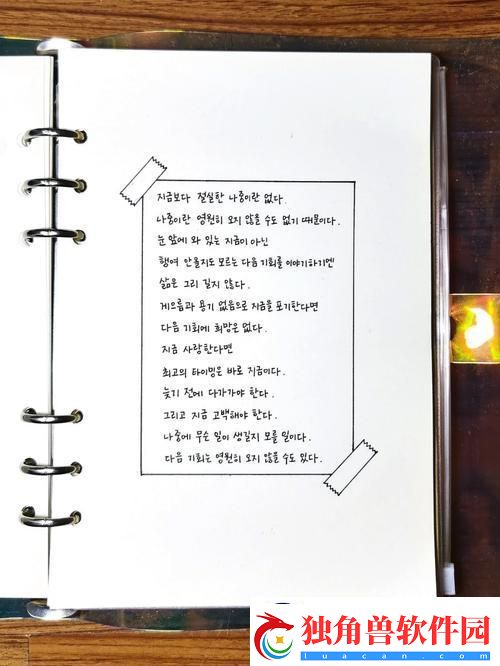 지금보다 절실한 나중이란 없다.
나중이란 영원히 오지 않을 수도 없기 때문이다.
눈 앞에 와 있는 지금이 아닌
행여 안올지도 모르는 다음 기회를 이야기하기엔
삶은 그리 길지 않다.
게으름과 용기 없음으로 지금을 포기한다면
다음 기회에 희망은 없다.
지금 사랑한다면
최고의 타이밍은 바로 지금이다.
늦기 전에 다가가야 한다.
그리고 지금 고백해야 한다.
나중에 무슨 일이 생길지 모를 일이다.
다음 기회는 영원히 오지 않을 수도 있다.
独角兽软件园
luacan.com